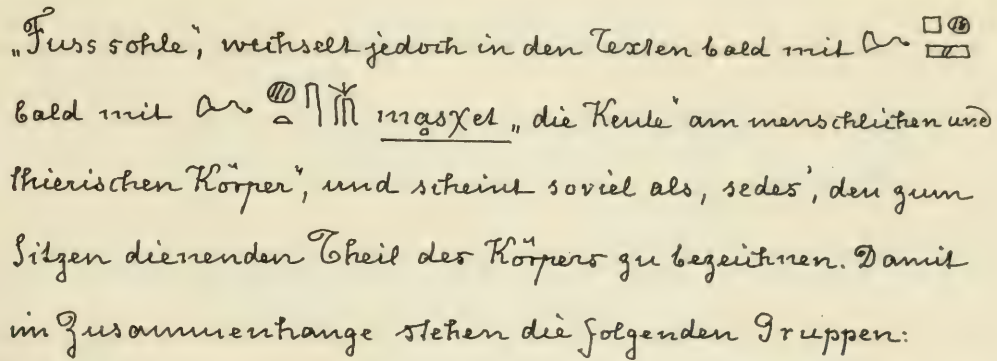 „Fuss sohle“, wechselt jedoch in den Texten bald mit
bald mit masχet „die Keule“ am menschlichen und
thierischen Körper“, und scheint soviel als, sedes‘, den zum
Sitzen dienenden Theil des Körpers zu bezeichnen. Damit
im Zusammenhange stehen die folgenden Gruppen: